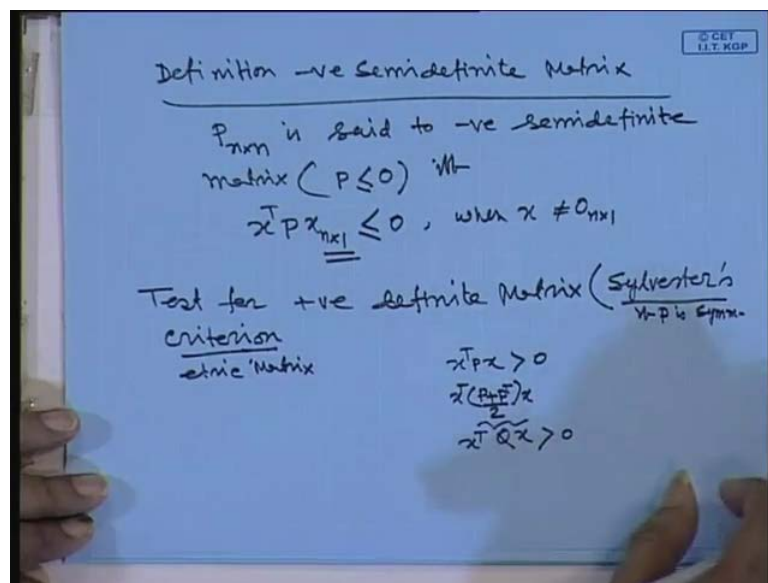 © CET
I.I.T. KGP
Definition -ve Semidefinite Matrix
Pn×n is said to -ve semidefinite
matrix (P ≤ 0) iff
xᵀPxn×1 ≤ 0, when x ≠ 0n×1
Test for +ve definite Matrix (Sylvester's
criterion
if P is symm-
etric Matrix
xᵀPx > 0
xᵀ(P+Pᵀ)x
2
xᵀQx > 0